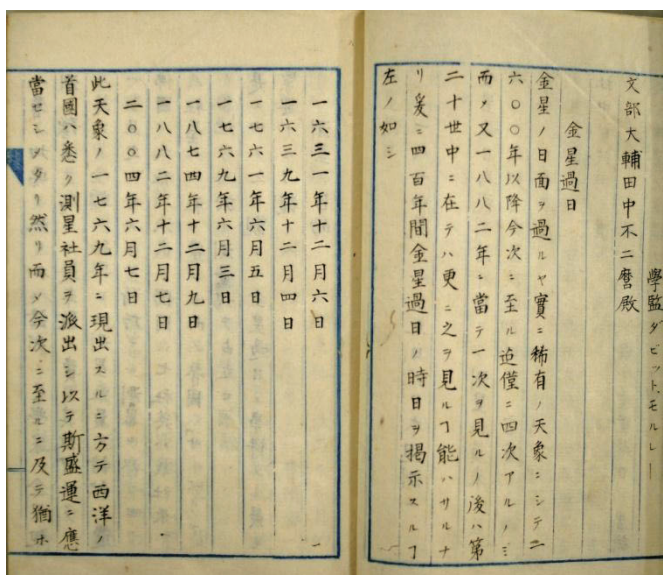 學監ダビットモルレー
文部大輔田中不二麿殿
金星過日
金星ノ日面ヲ過ルヤ實ニ稀有ノ天象ニシテ一
六〇〇年以降今次ニ至ル迄僅ニ四次アルノミ
而メ又一八八二年ニ當テ一次ヲ見ルノ後ハ第
二十世中ニ在テハ更ニ之ヲ見ルヿ能ハサルナ
リ爰ニ四百年間金星過日ノ時日ヲ掲示スルヿ
左ノ如シ
一六三一年十二月六日
一六三九年十二月四日
一七六一年六月五日
一七六九年六月三日
一八七四年十二月九日
一八八二年十二月七日
二〇〇四年六月七日
此天象ノ一七六九年ニ現出スルニ方テ西洋ノ
首國ハ悉ク測星社員ヲ派出シ以テ斯盛運ニ應
當セシメタリ然リ而メ今次ニ至ルニ及テ猶ホ